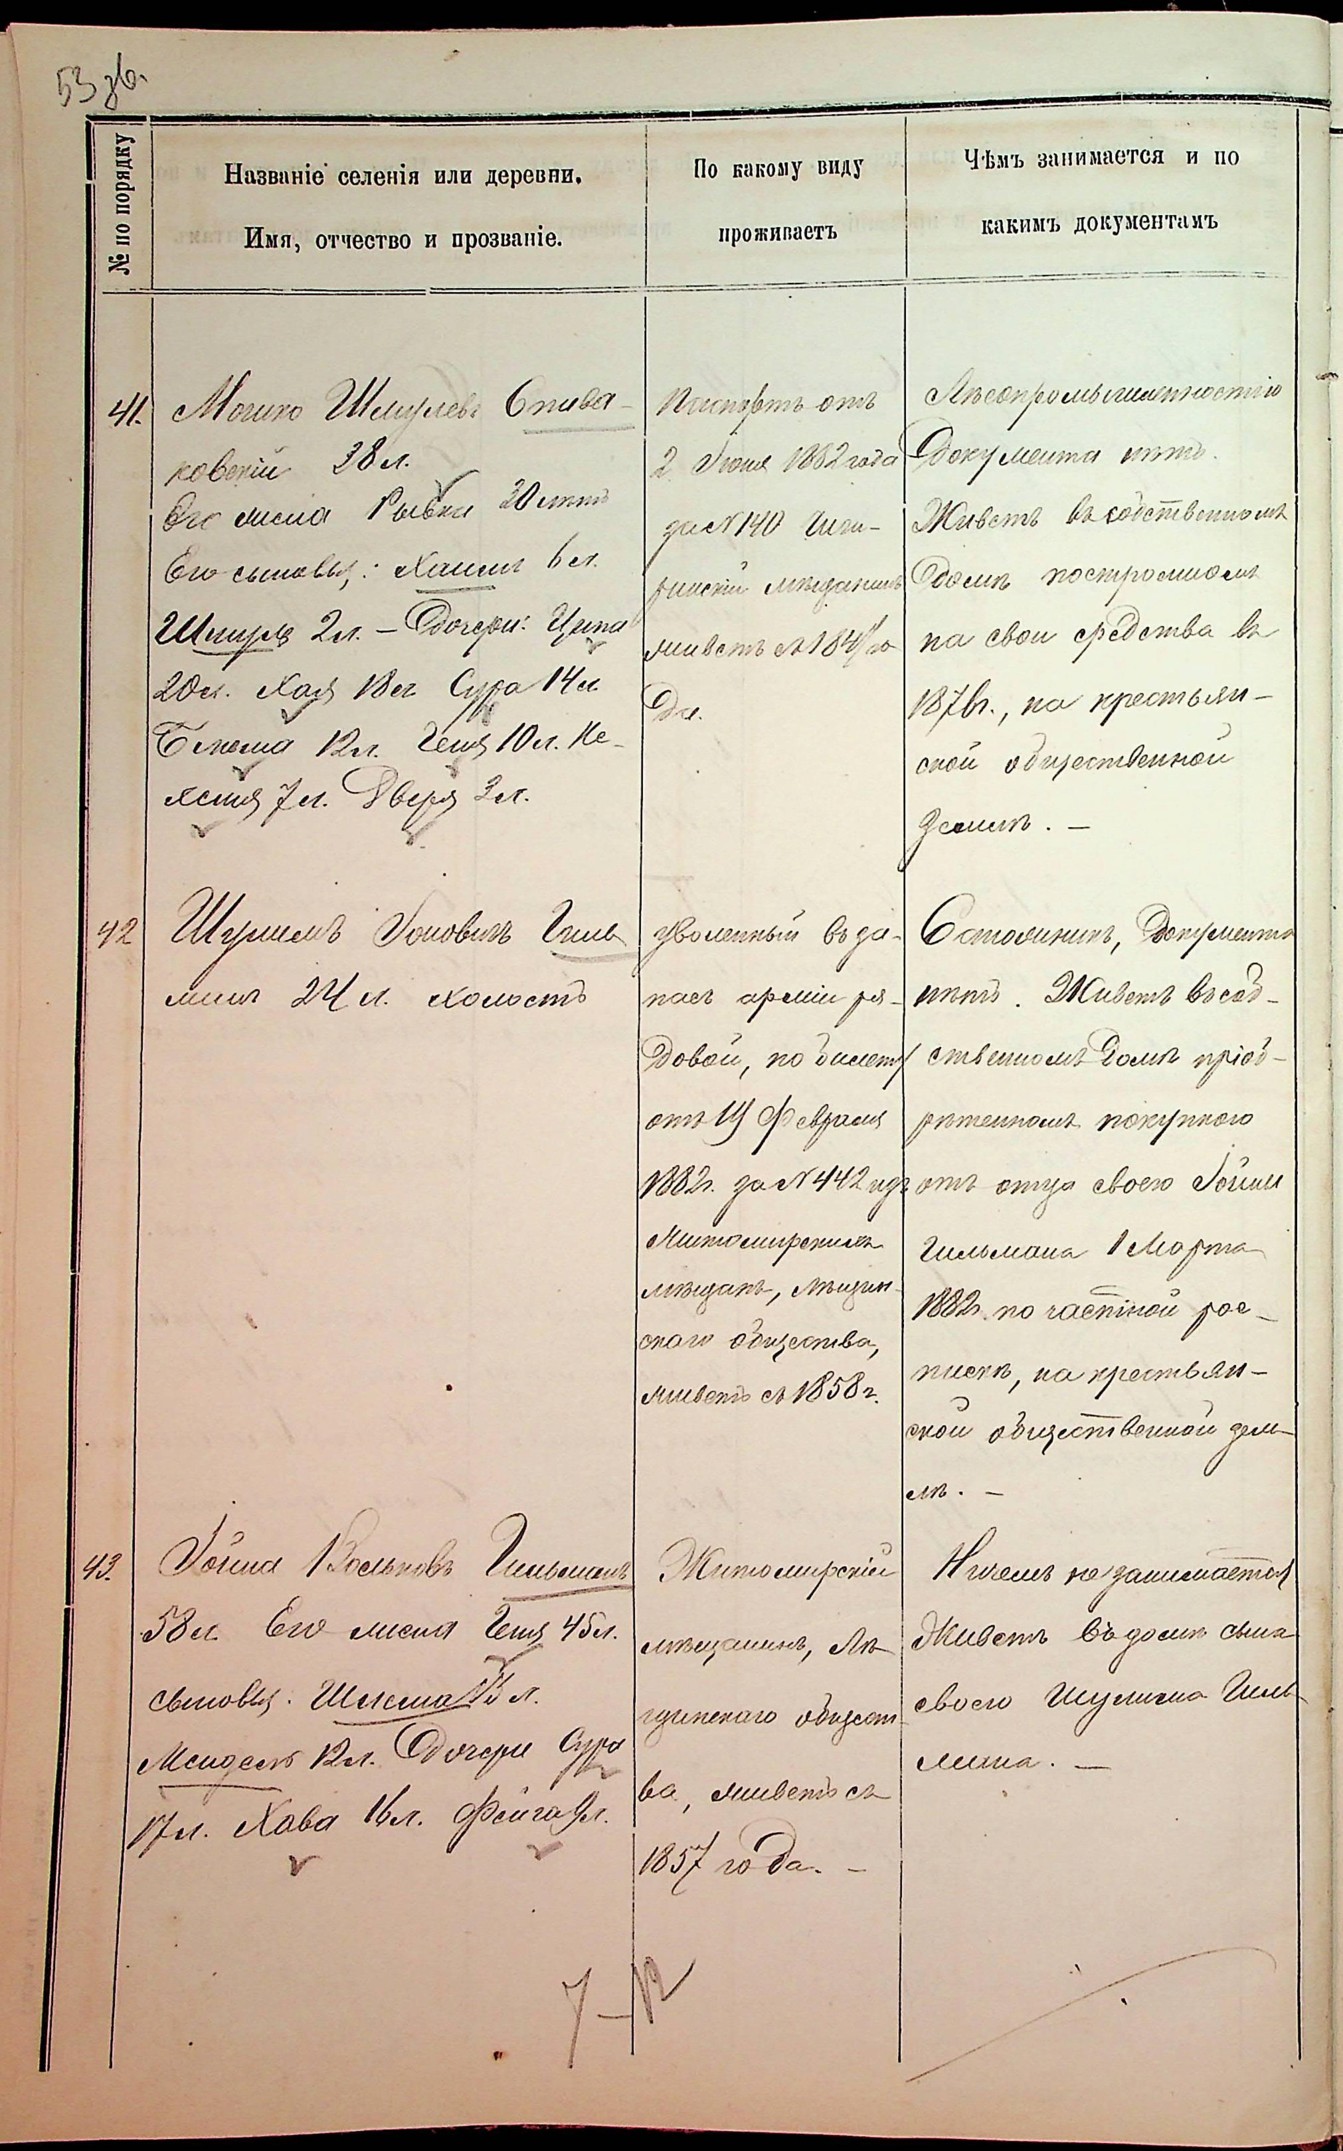 53 зв.
№ по порядку
Названіе селенія или деревни.
Имя, отчество и прозваніе.
По какому виду
проживаетъ
Чѣмъ занимается и по
какимъ документамъ
41.
Мошко Шмулевъ Спива-
ковскій 38 л.
Его жена Рывка 30 лѣтъ
Его сыновья: Хаимъ 6 л.
Шмуль 2 л. – Дочери: Ципа
20 л. Хая 18 л. Сура 14 л.
12 л. Геня 10 л. Не-
7 л. Двейра 3 л.
Паспортъ отъ
2 Іюня 1882 года
за № 140 Чиги-
ринскій мѣщанинъ
живетъ съ 184 го-
да.
Лѣсопромышленностію
Документа нѣтъ.
Живетъ въ собственномъ
Домѣ построенномъ
на свои средства въ
187 г., на крестьян-
ской общественной
землѣ. –
42
Шулимъ Іоновичъ Гиль
манъ 24 л. холостъ
уволенный въ за-
пасъ арміи ря-
довой, по билету
отъ 19 Февраля
1882 г. за № 442 изъ
Житомирскихъ
мѣщанъ,
скаго общества,
живетъ съ 1858 г.
Документа
нѣтъ. Живетъ въ соб-
ственномъ Домѣ пріоб-
рѣтенномъ покупкою
отъ отца своего Іойны
Гильмана 1 Марта
1882 г. по частной рос-
пискѣ, на крестьян-
ской общественной зем-
лѣ. –
43.
Іойна Вольковъ Гильманъ
58 л. Его жена Геня 45 л.
сыновья: Шлема 15 л.
Мендель 12 л. Дочери Сура
17 л. Хава 16 л. Фейга 9 л.
Житомирскій
мѣщанинъ,
общест-
ва, живетъ съ
1857 года. –
Ничемъ не занимается
Живетъ въ домѣ сына
своего Шулима Гиль-
мана. –
7 – 12